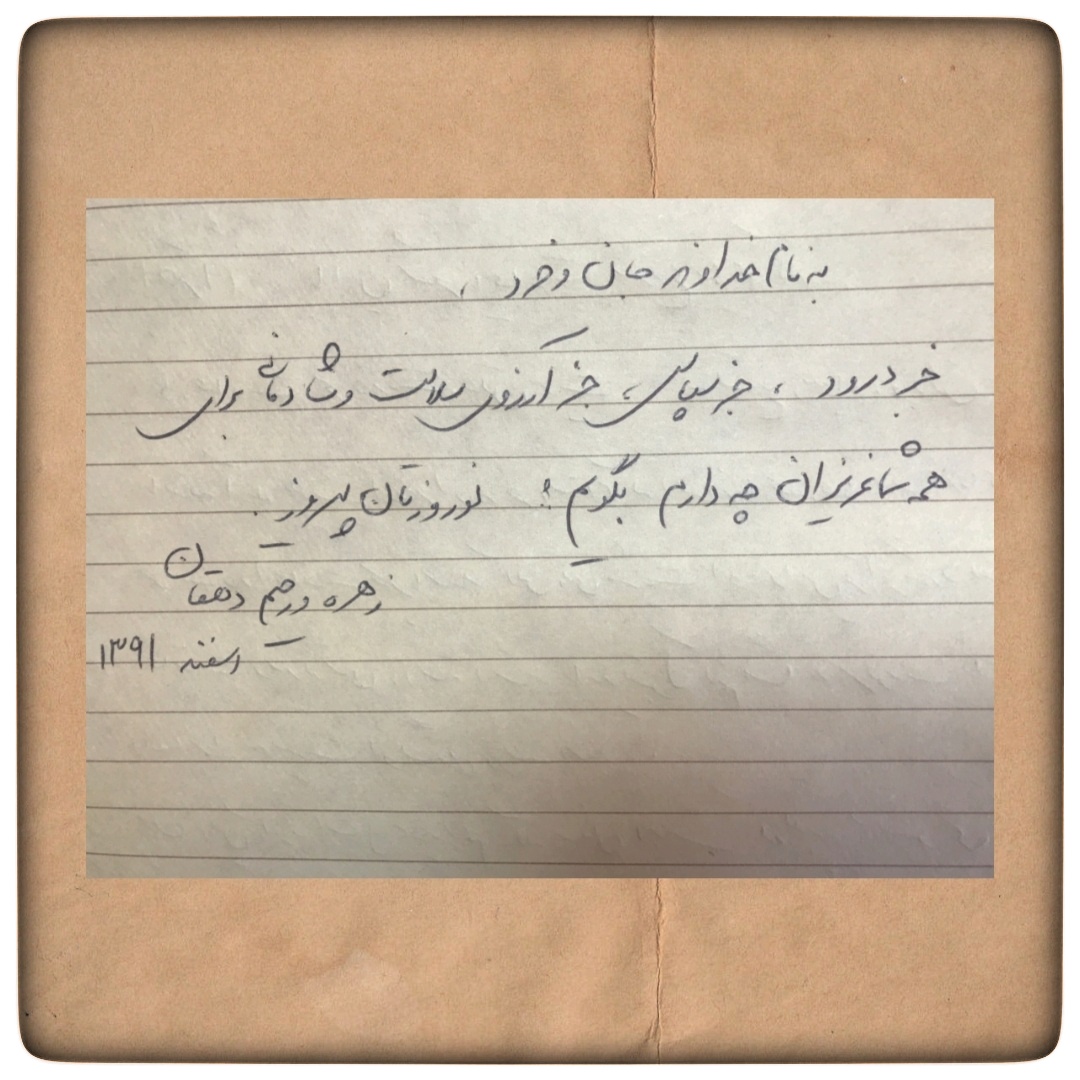 به نام خداوند جان و خرد،
جز درود، جز سپاس، جز آرزوی سلامت و شادمانی برای
همه شما عزیزان چه دارم بگویم؛ نوروزتان پیروز.
زهره و رحیم دهقان
اسفند ۱۳۹۱